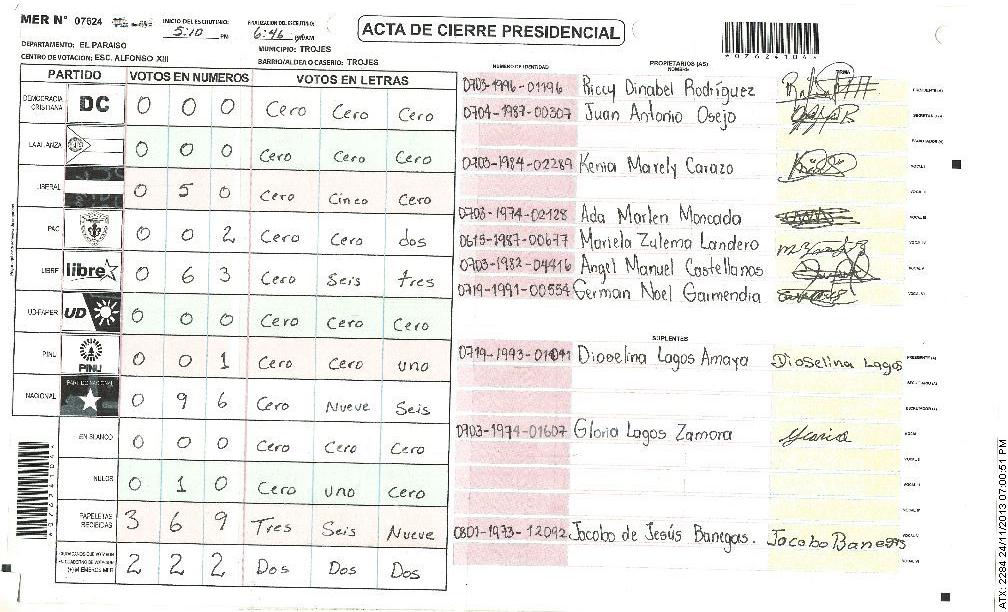 MER N° 07624
INICIO DEL ESCRUTINIO: 5:10 PM
FINALIZACION DEL ESCRUTINIO: 6:46
ACTA DE CIERRE PRESIDENCIAL
*07624106*
DEPARTAMENTO: EL PARAISO
MUNICIPIO: TROJES
CENTRO DE VOTACION: ESC. ALFONSO XIII
BARRIO/ALDEA O CASERIO: TROJES
PARTIDO VOTOS EN NUMEROS VOTOS EN LETRAS
DEMOCRACIA CRISTIANA DC 0 0 0 Cero Cero Cero
LA ALIANZA 0 0 0 Cero Cero Cero
LIBERAL 0 5 0 Cero Cinco Cero
PAC 0 0 2 Cero Cero dos
LIBRE libre 0 6 3 Cero Seis tres
UD-FAPER UD 0 0 0 Cero Cero Cero
PINU PINU 0 0 1 Cero Cero uno
NACIONAL PARTIDO NACIONAL 0 9 6 Cero Nueve Seis
EN BLANCO 0 0 0 Cero Cero Cero
NULOS 0 1 0 Cero uno Cero
PAPELETAS RECIBIDAS 3 6 9 Tres Seis Nueve
2 2 2 Dos Dos Dos
NUMERO DE IDENTIDAD PROPIETARIOS (AS) NOMBRE FIRMA
0703-1996-01196 Riccy Dinabel Rodríguez PRESIDENTE(A)
0704-1987-00307 Juan Antonio Osejo SECRETARIO(A)
ESCRUTADOR(A)
0703-1984-02289 Kenia Marely Carazo VOCAL I
VOCAL II
0703-1974-02128 Ada Marlen Moncada VOCAL III
0615-1987-00677 Mariela Zulema Landero VOCAL IV
0703-1982-04416 Angel Manuel Castellanos VOCAL V
0719-1991-00554 German Noel Gaimendia VOCAL VI
SUPLENTES
0719-1993-01041 Dioselina Lagos Amaya Dioselina Lagos PRESIDENTE(A)
SECRETARIO(A)
ESCRUTADOR(A)
0703-1974-01607 Gloria Lagos Zamora VOCAL I
VOCAL II
VOCAL III
VOCAL IV
0801-1973-12092 Jacobo de Jesús Banegas. Jacobo Banegas VOCAL V
VOCAL VI
ATX: 2284 24/11/2013 07:00:51 PM